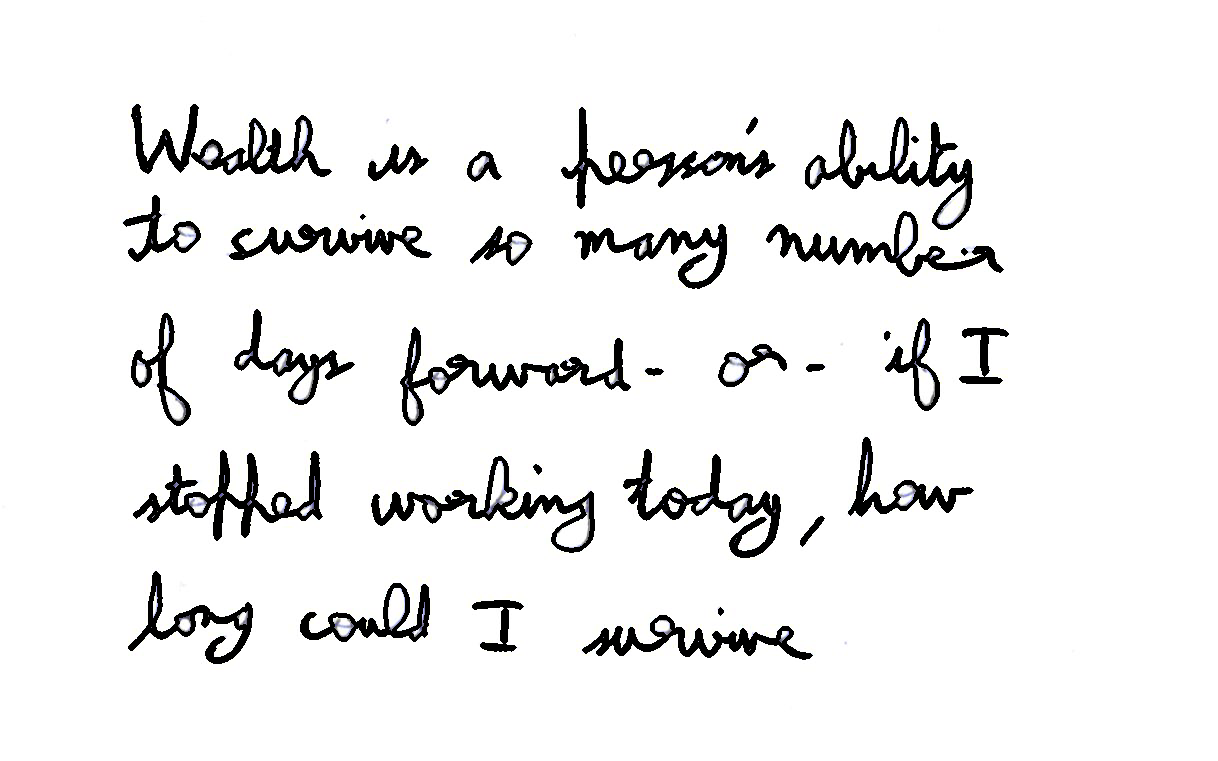 Wealth is a person's ability
to survive so many number
of days forward - or - if I
stopped working today, how
long could I survive